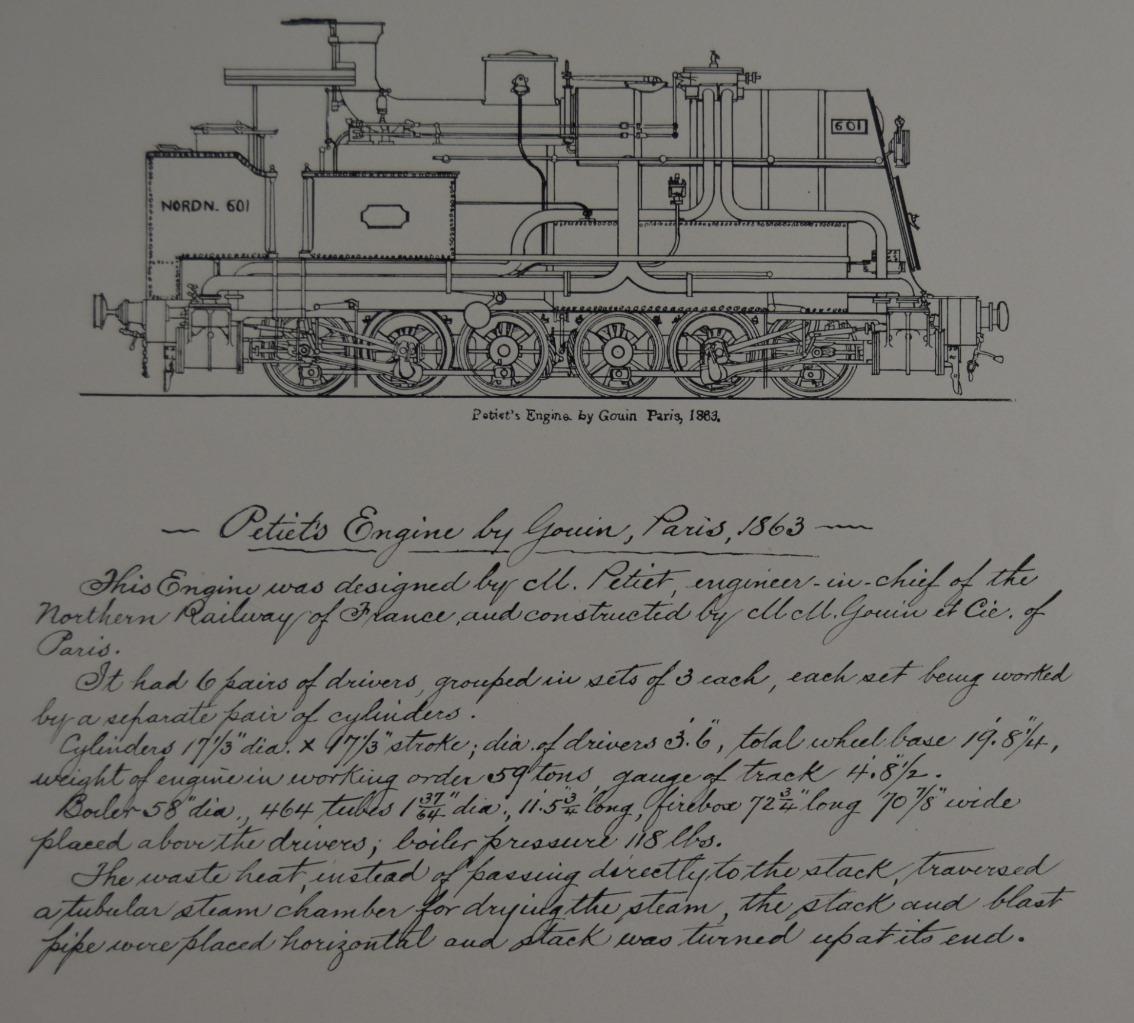 601
NORD N. 601
Petiet's Engine by Gouin Paris, 1863.
— Petiet's Engine by Gouin, Paris, 1863 —
This Engine was designed by M. Petiet, engineer-in-chief of the
Northern Railway of France, and constructed by MM. Gouin et Cie. of
Paris.
It had 6 pairs of drivers, grouped in sets of 3 each, each set being worked
by a separate pair of cylinders.
Cylinders 17 1/3" dia. x 17 1/3" stroke; dia. of drivers 3'.6", total wheel base 19'.8 1/4",
weight of engine in working order 59 tons, gauge of track 4'.8 1/2".
Boiler 58" dia., 464 tubes 1 37/64" dia., 11'.5 3/4" long, firebox 72 3/4" long 70 7/8" wide
placed above the drivers; boiler pressure 118 lbs.
The waste heat, instead of passing directly to the stack, traversed
a tubular steam chamber for drying the steam, the stack and blast
pipe were placed horizontal and stack was turned up at its end.